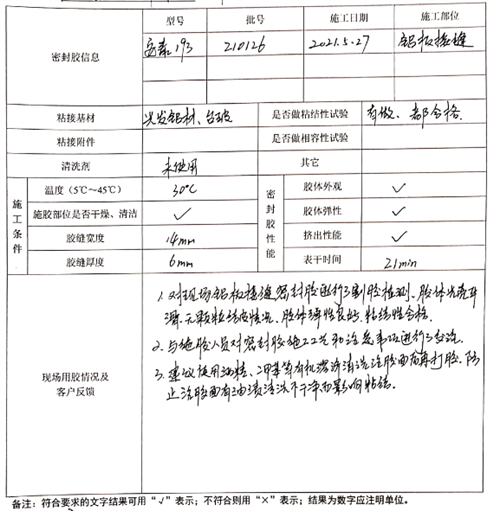 型号 批号 施工日期 施工部位
密封胶信息 安泰193 210126 2021.5.27 铝板接缝
粘接基材 兴发铝材、台玻 是否做粘结性试验 有做、都合格
粘接附件 是否做相容性试验
清洗剂 未使用 其它
施工条件 温度(5℃～45℃) 30℃ 密封胶性能 胶体外观 ✓
施胶部位是否干燥、清洁 ✓ 胶体弹性 ✓
胶缝宽度 14mm 挤出性能 ✓
胶缝厚度 6mm 表干时间 21min
现场用胶情况及
客户反馈
1、对现场铝板接缝密封胶进行了割胶检测、胶体光亮平
滑、无颗粒结皮情况、胶体弹性良好、粘结性合格.
2、与施胶人员对密封胶施工工艺和注意事项进行了交流.
3、建议使用油性、二甲苯等有机溶济清洗注胶面后再打胶、防
止注胶面有油渍清洗不干净而影响粘结.
备注：符合要求的文字结果可用“√”表示；不符合则用“×”表示；结果为数字应注明单位。